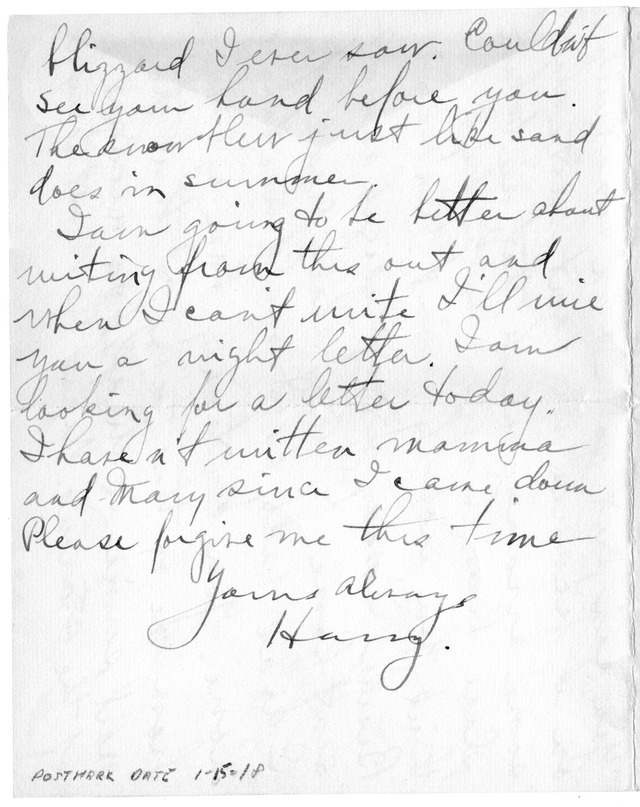 blizzard I ever saw. Couldn't
see your hand before you.
The snow blew just like sand
does in summer.
I am going to be better about
writing from this out and
when I can't write I'll wire
you a night letter. I am
looking for a letter today.
I haven't written mamma
and Mary since I came down
Please forgive me this time
Yours always
Harry.
POSTMARK DATE 1-15-18